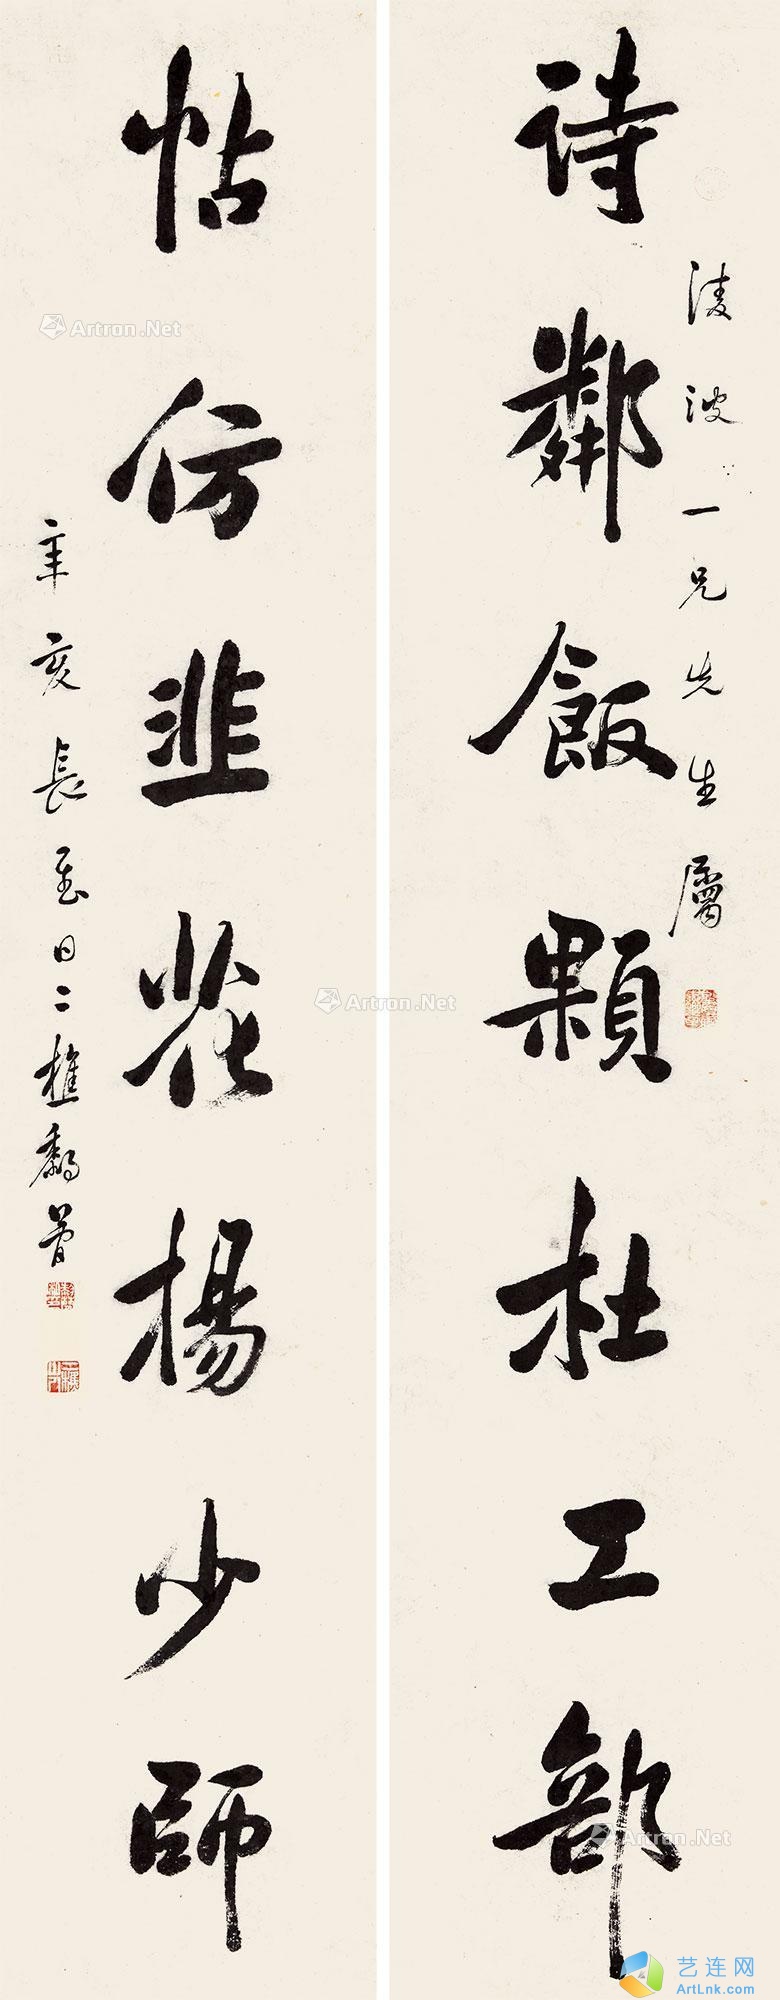 凌波一兄先生屬
詩鄰飯顆杜工部
帖仿韭花楊少師
辛亥長至日二樵黎簡
Artron.Net
Artron.Net
Artron.Net
艺连网
ArtLnk.com